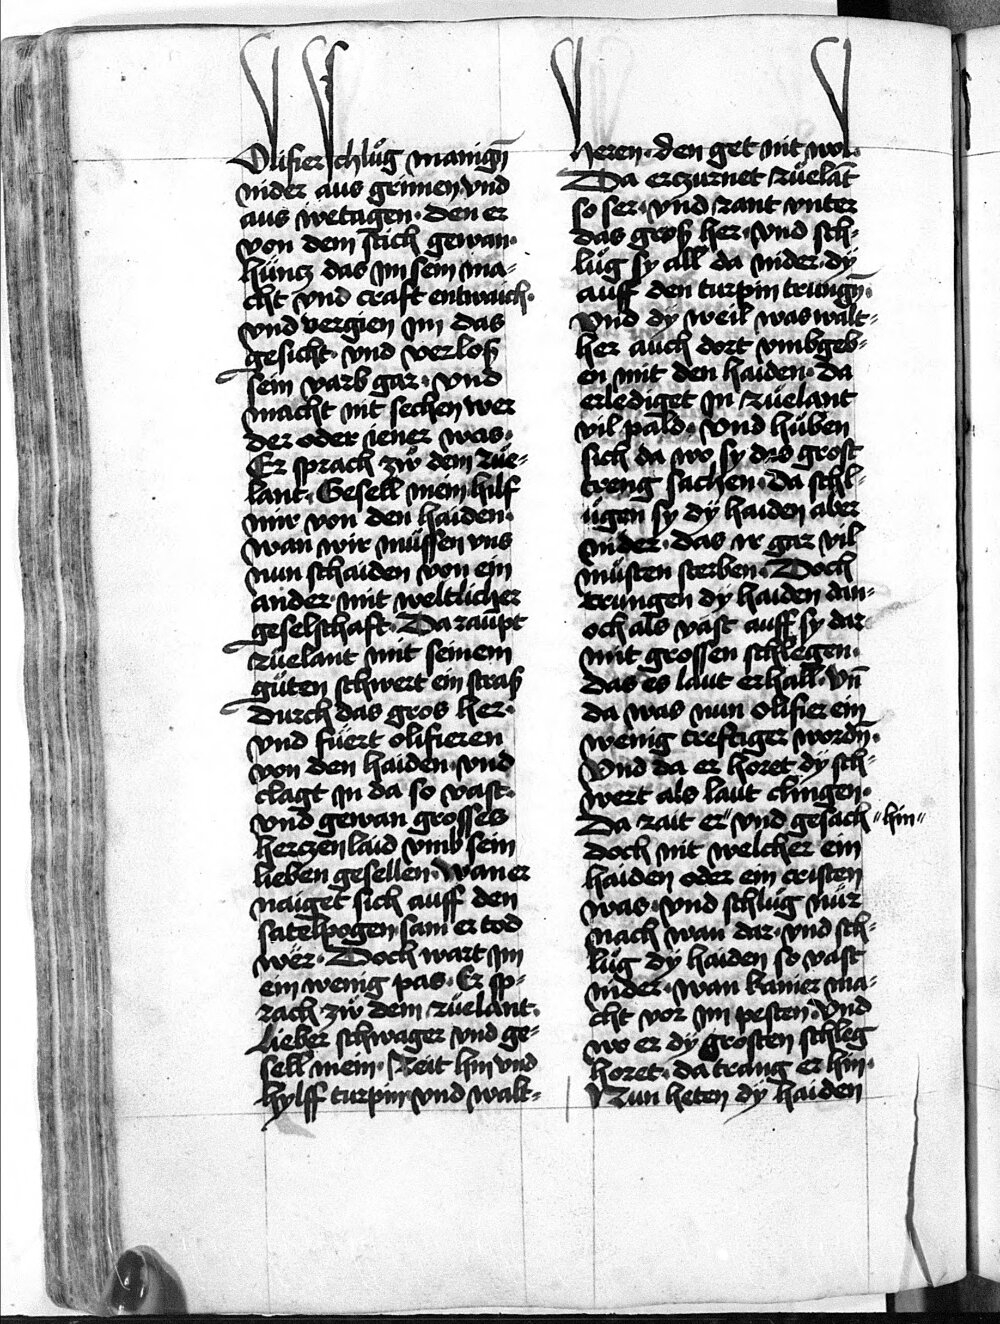 Olifier schlůg manigñ
nider aus grimen vnd
aus wetagen · den er
von dem stich gewan ·
hüncz das jm sein ma-
cht vnd craft entwaich ·
vnd vergien jm das
gesicht · vnd verloß
sein varb gar · vnd
macht nit sechen wer
der oder iener was ·
Er sprach zw̋ dem rüe-
lant · Gesell mein hilf
mir von den haiden ·
wan wir müssen vns
nun schaiden von ein
ander · mit weltlicher
geselschaft · Da raupt
rüelant mit seinem
gůten schwert ein straß
durch das gros her ·
vnd füert olifieren
von den haiden · vnd
clagt jn da so vast ·
vnd gewan grosses
herczen laid vmb sein
lieben gesellen · wan er
naiget sich auff den
satelpogen sam er tod
wër · Doch wart jm
ein wenig pas · Er sp-
rach zw̋ dem rüelant ·
Lieber schwager vnd ge-
sell mein · Reit hin vnd
hylff turpin vnd walt-
heren · den get nit wol ·
Da erczurnet rüelañt
so ser · vnd rant vnter
das groß her · vnd sch-
lůg sy all da nider · dy
auff den turpin trungñ ·
Vnd dy weil was walt-
her auch dort vmbgeb-
en mit den haiden · Da
erlediget jn rüelant
vil pald · Vnd hůben
sich da wo sy das grost
treng sachen · Da schl-
ůgen sy dÿ haiden aber
nider · das yr gar vil
můsten sterben · Doch
trungen dy haiden dan-
och als vast auff sy dar
mit grossen schlegen ·
das es laut erhall · vñ
da was nun olifier ein
wenig creftiger wordñ ·
Vnd da er horet dy sch-
wert als laut clingen ·
Da rait er " vnd gesach " hin "
doch nit welcher ein
haiden oder ein cristen
was · vnd schlůg nür
nach wan dar · vnd sch-
lůg dy haiden so vast
nider · wan kainer ma-
cht vor jm pesten · Vnd
wo er dy grosten schleg
horet · da trang er hin ·
Nun heten dÿ haiden